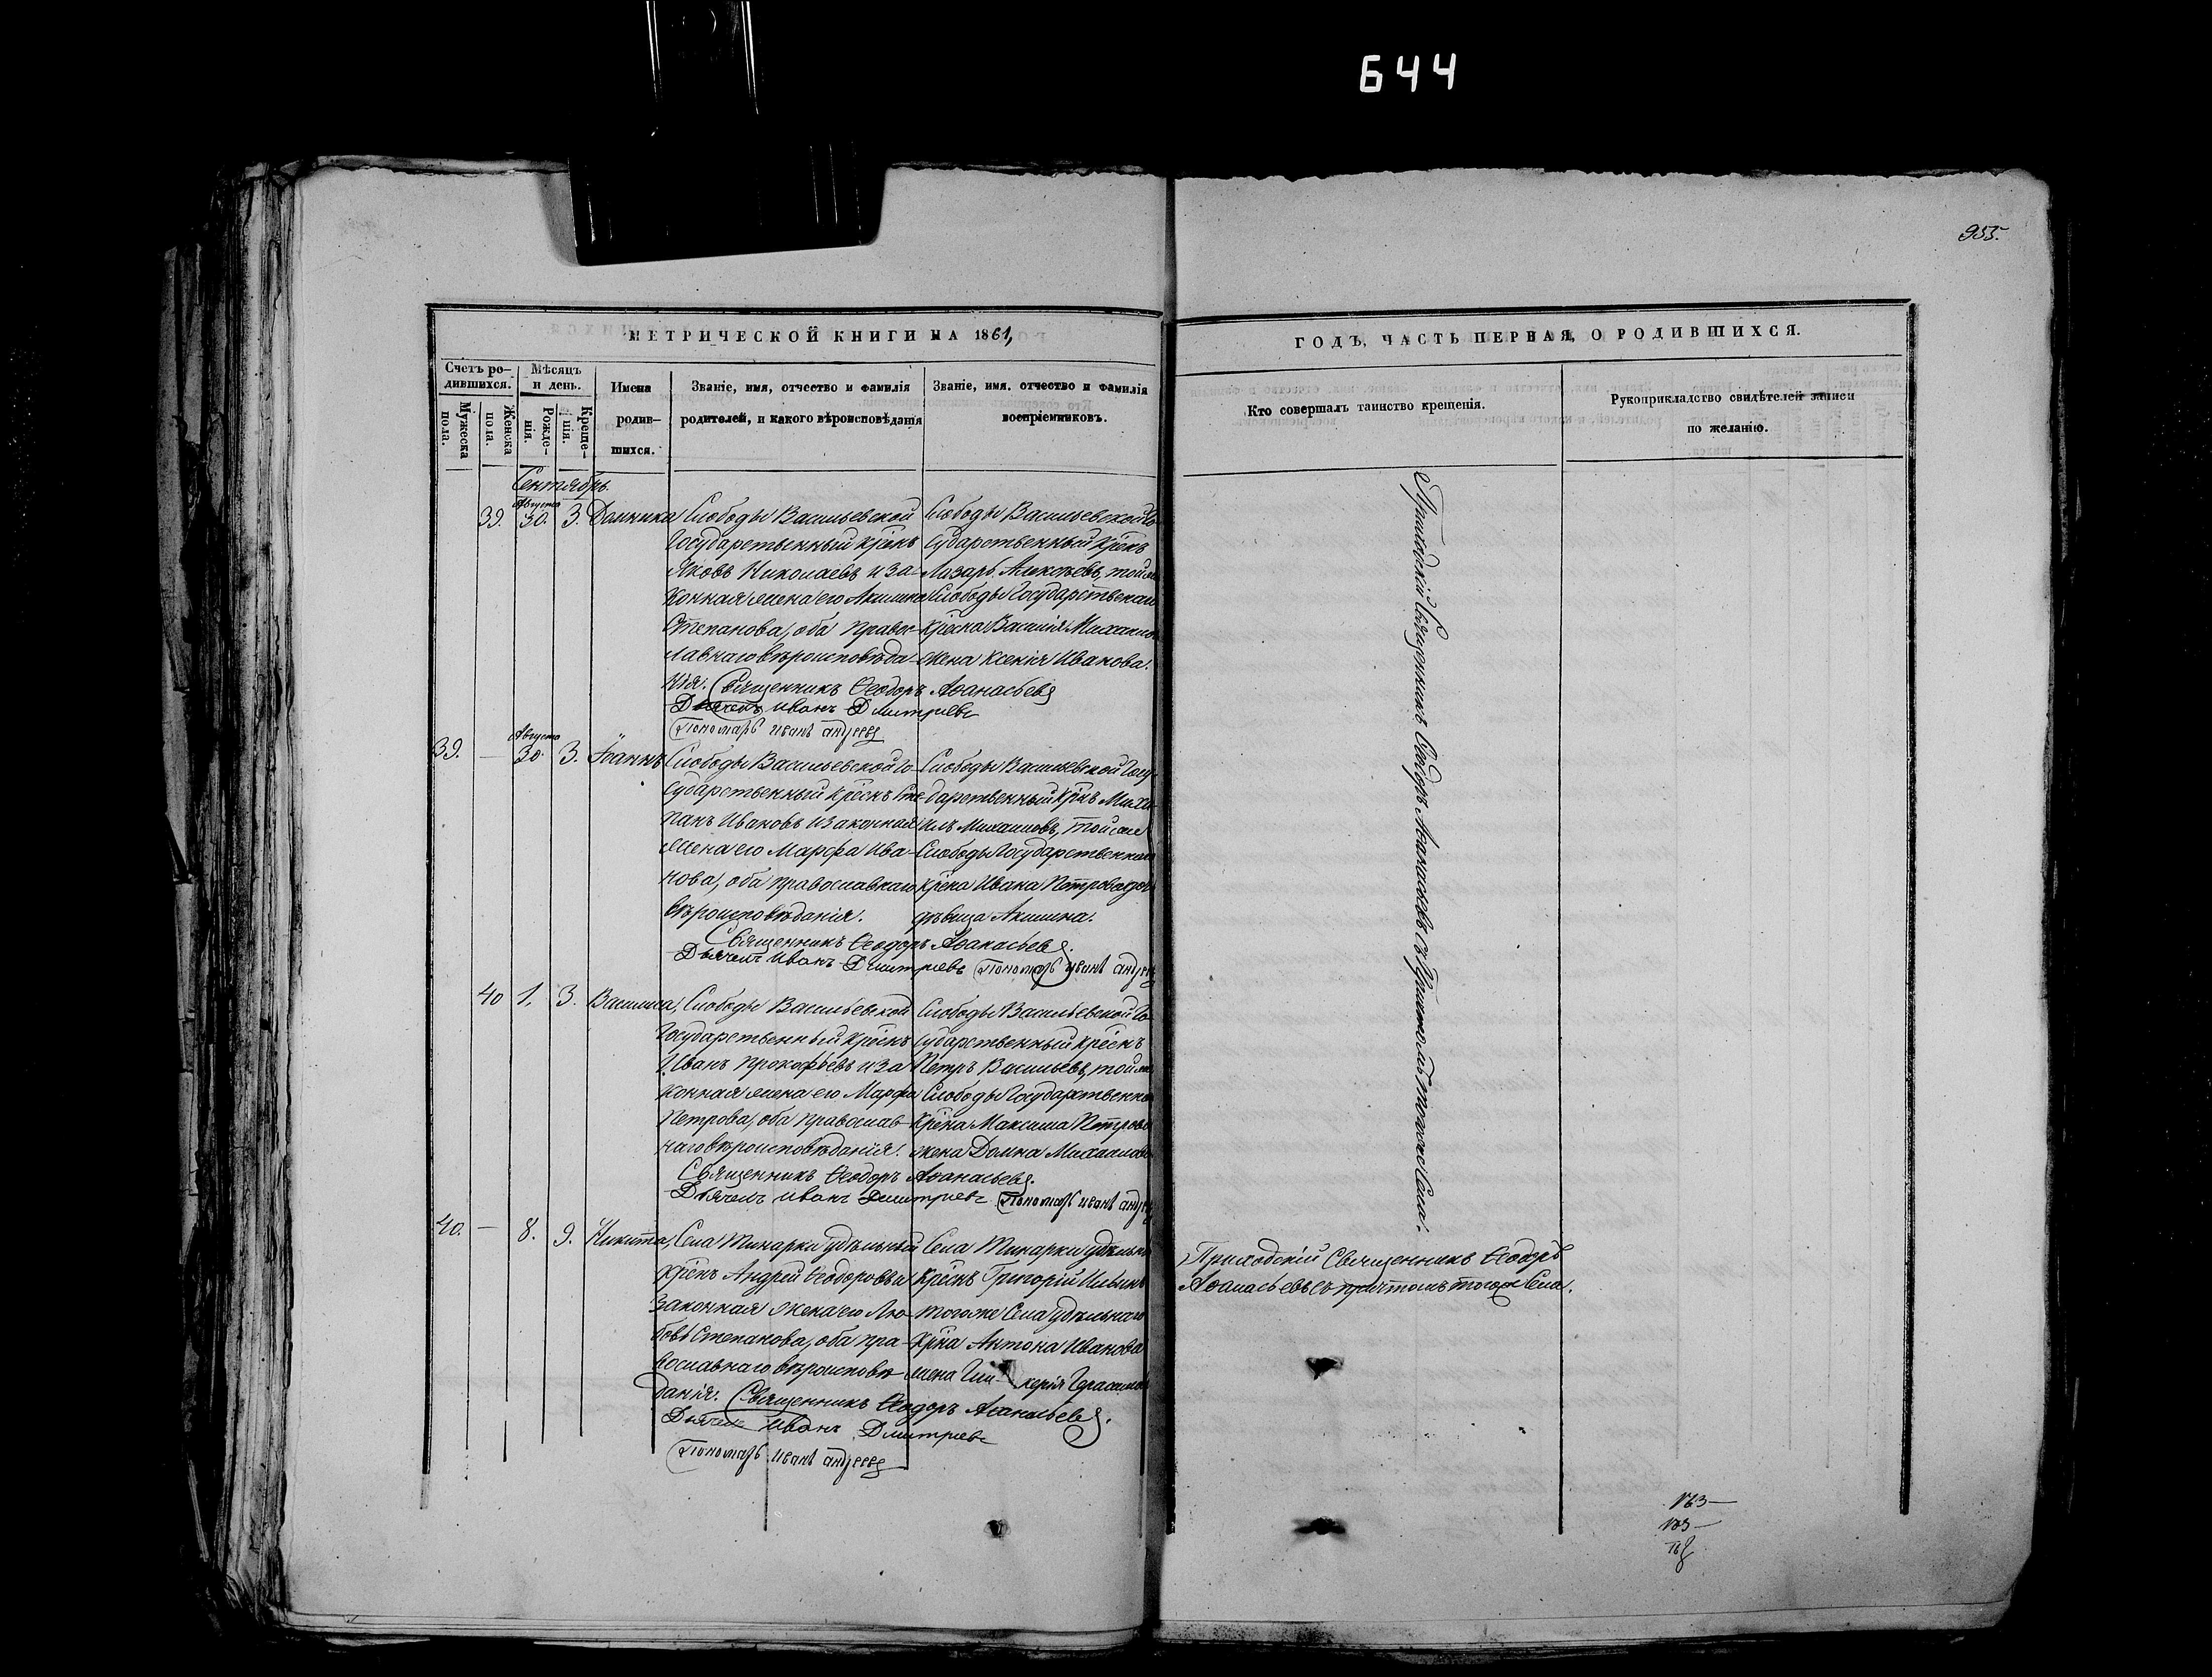 644
955.
МЕТРИЧЕСКОЙ КНИГИ НА 1861,
ГОДЪ, ЧАСТЬ ПЕРВАЯ, О РОДИВШИХСЯ.
Счетъ ро-
дившихся.
Мужеска
пола.
Женска
пола.
Мѣсяцъ
и день.
Рожде-
нія.
Креще-
нія.
Имена
родив-
шихся.
Званіе, имя, отчество и фамилія
родителей, и какого вѣроисповѣданія
Званіе, имя. отчество и фамилія
воспріемниковъ.
Кто совершалъ таинство крещенія.
Рукоприкладство свидѣтелей записи
по желанію.
Сентябрь.
Августа
39. 30. 3. Домника
Слободы Васильевской
Государственный крѣснъ
Яковъ Николаевъ и за-
конная жена его Акилина
Степанова, оба правос-
лавнаго вѣроисповѣда-
нія. Священникъ Ѳеодоръ Аѳанасьевъ
Дьячекъ Иванъ Дмитриевъ
Пономарь Иванъ Андреевъ
Слободы Васильевской Го-
сударственный крѣснъ
Лазарь Алексѣевъ, той же
Слободы Государственнаго
крѣсна Василія Михайлова
жена Ксенія Иванова.
Августа
39. — 30. 3. Іоаннъ
Слободы Васильевской Го-
сударственный крѣснъ Сте-
панъ Ивановъ и законная
жена его Марфа Ива-
нова, оба православнаго
вѣроисповѣданія.
Священникъ Ѳеодоръ Аѳанасьевъ.
Дьячекъ Иванъ Дмитриевъ Пономарь Иванъ Андреевъ
Слободы Васильевской Госу-
дарственный крѣснъ Миха-
илъ Михаиловъ, той же
Слободы Государственнаго
крѣсна Ивана Петрова
дѣвица Акилина.
40 1. 3. Василиса,
Слободы Васильевской
Государственный крѣснъ
Иванъ Прокофьевъ и за
конная жена его Марфа
Петрова, оба православ-
наго вѣроисповѣданія.
Священникъ Ѳеодоръ Аѳанасьевъ.
Дьячекъ Иванъ Дмитриевъ Пономарь Иванъ Андреевъ
Слободы Васильевской Го-
сударственный крѣснъ
Петръ Васильевъ, той же
Слободы Государственнаго
крѣсна Максима Петрова
жена Домна Михаилова
40. — 8. 9. Никита,
Села Тинарки удѣльный
крѣснъ Андрей Ѳеодоровъ и
законная жена его Лю-
бовь Степанова, оба пра-
вославнаго вѣроисповѣ-
данія. Священникъ Ѳеодоръ Аѳанасьевъ.
Дьячекъ Иванъ Дмитриевъ
Пономарь Иванъ Андреевъ
Села Тинарки удѣльный
крѣснъ Григорій Ильинъ
того же Села удѣльнаго
крѣсна Антона Иванова
жена Гли-керія Герасимова
Приходскій Священникъ Ѳеодоръ Аѳанасьевъ съ причтомъ того же Села.
Приходскій Священникъ Ѳеодоръ
Аѳанасьевъ съ причтомъ того же Села.